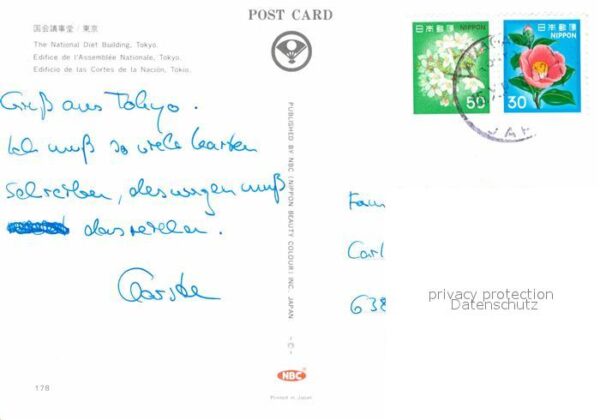 POST CARD
国会議事堂／東京
The National Diet Building, Tokyo.
Edifice de l'Assemblée Nationale, Tokyo.
Edificio de las Cortes de la Nación, Tokio.
Gruß aus Tokyo.
Ich muß so viele Karten
schreiben, deswegen muß
das reichen.
Carsten
PUBLISHED BY NBC (NIPPON BEAUTY COLOUR) INC. JAPAN
NBC
Printed in Japan
178
日本郵便
NIPPON
50
日本郵便
NIPPON
30
Fam
Carl
638
privacy protection
Datenschutz